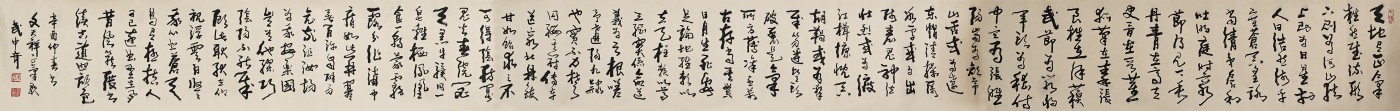 天地有正氣
雜然賦流形
下則為河嶽
上則為日星於
人曰浩然沛乎
塞蒼冥皇路
當清夷含和
吐明庭時窮
節乃見一一垂
丹青在齊太
史簡在晉董
狐筆在秦張
良椎在漢蘇
武節為嚴將
軍頭為嵇侍
中血為張睢
陽齒為顏常
山舌或為遼
東帽清操厲
冰雪或為出
師表鬼神泣
壯烈或為渡
江楫慷慨吞
胡羯或為擊
賊笏逆豎頭
破裂是氣
所磅礴凜烈
萬古存當其貫
日月生死安
足論地維賴以
立天柱賴以尊
三綱實係命道
義為之根嗟
予遘陽九隸
也實不力楚
囚纓其冠傳車
送窮北鼎鑊
甘如飴求之不
可得陰房闐
鬼火春院閟
天黑牛驥同一
皂雞棲鳳凰
食一朝蒙霧
露分作溝中
瘠如此再寒
暑百沴自辟易
哀哉沮洳場
為我安樂國
豈有他繆巧
陰陽不能賊
顧此耿耿在仰
視浮雲白悠悠
我心悲蒼天
曷有極哲人
日已遠典刑在夙
昔風簷展書讀
古道照顏色
辛酉仲春書
文天祥正氣歌
武中奇